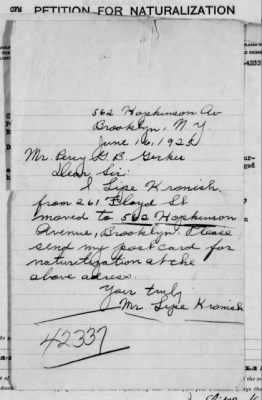 PETITION FOR NATURALIZATION
562 Hopkinson Av
Brooklyn, N.Y
June 16, 1925
Mr. Percy G. B. Gerkes
Dear Sir:
I Lipe Kronish
from 261 Floyd St
moved to 562 Hopkinson
Avenue, Brooklyn. Please
send my postcard for
naturetigation at the
above adress.
Your truly
Mr. Lipe Kronish
42337